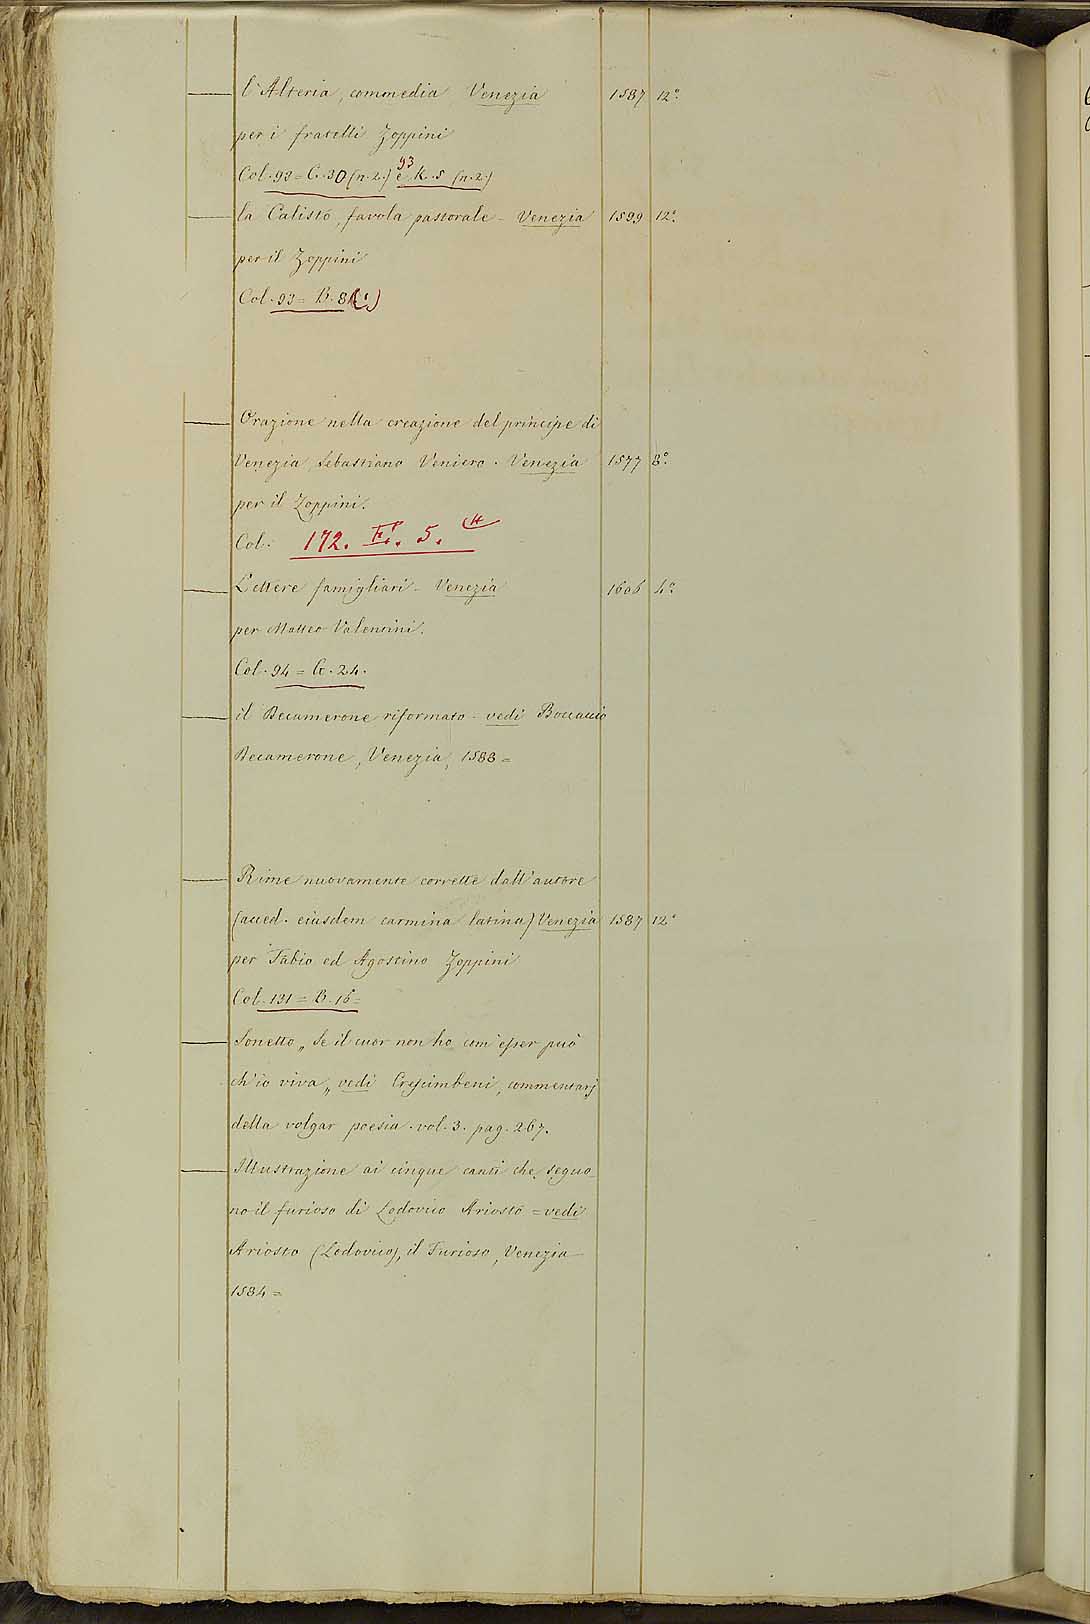 l'Alteria, commedia Venezia 1587 12°.
per i fratelli Zoppini
Col. 93 = G. 30 (n. 2.) e 93 K. 5 (n. 2.)
la Calisto, favola pastorale - Venezia 1599 12°.
per il Zoppini
Col. 93 = B. 8 (1)
Orazione nella creazione del principe di
Venezia, Sebastiano Veniero. Venezia 1577 8°.
per il Zoppini.
Col. 172. 5.
Lettere famigliari - Venezia 1606 4°.
per Matteo Valentini.
Col. 94 = G. 24.
il Decamerone riformato - vedi Boccaccio
Decamerone, Venezia, 1588 =
Rime nuovamente corrette dall'autore
(acced. eiusdem carmina latina) Venezia 1587 12°
per Fabio ed Agostino Zoppini
Col. 131 = B. 16 =
Sonetto „ Se il cuor non ho com' esser può
ch'io viva „ vedi Crescimbeni, commentarj
della volgar poesia. vol. 3. pag. 267.
Illustrazione ai cinque canti che seguo-
no il furioso di Lodovico Ariosto = vedi
Ariosto (Lodovico), il Furioso, Venezia
1584 =